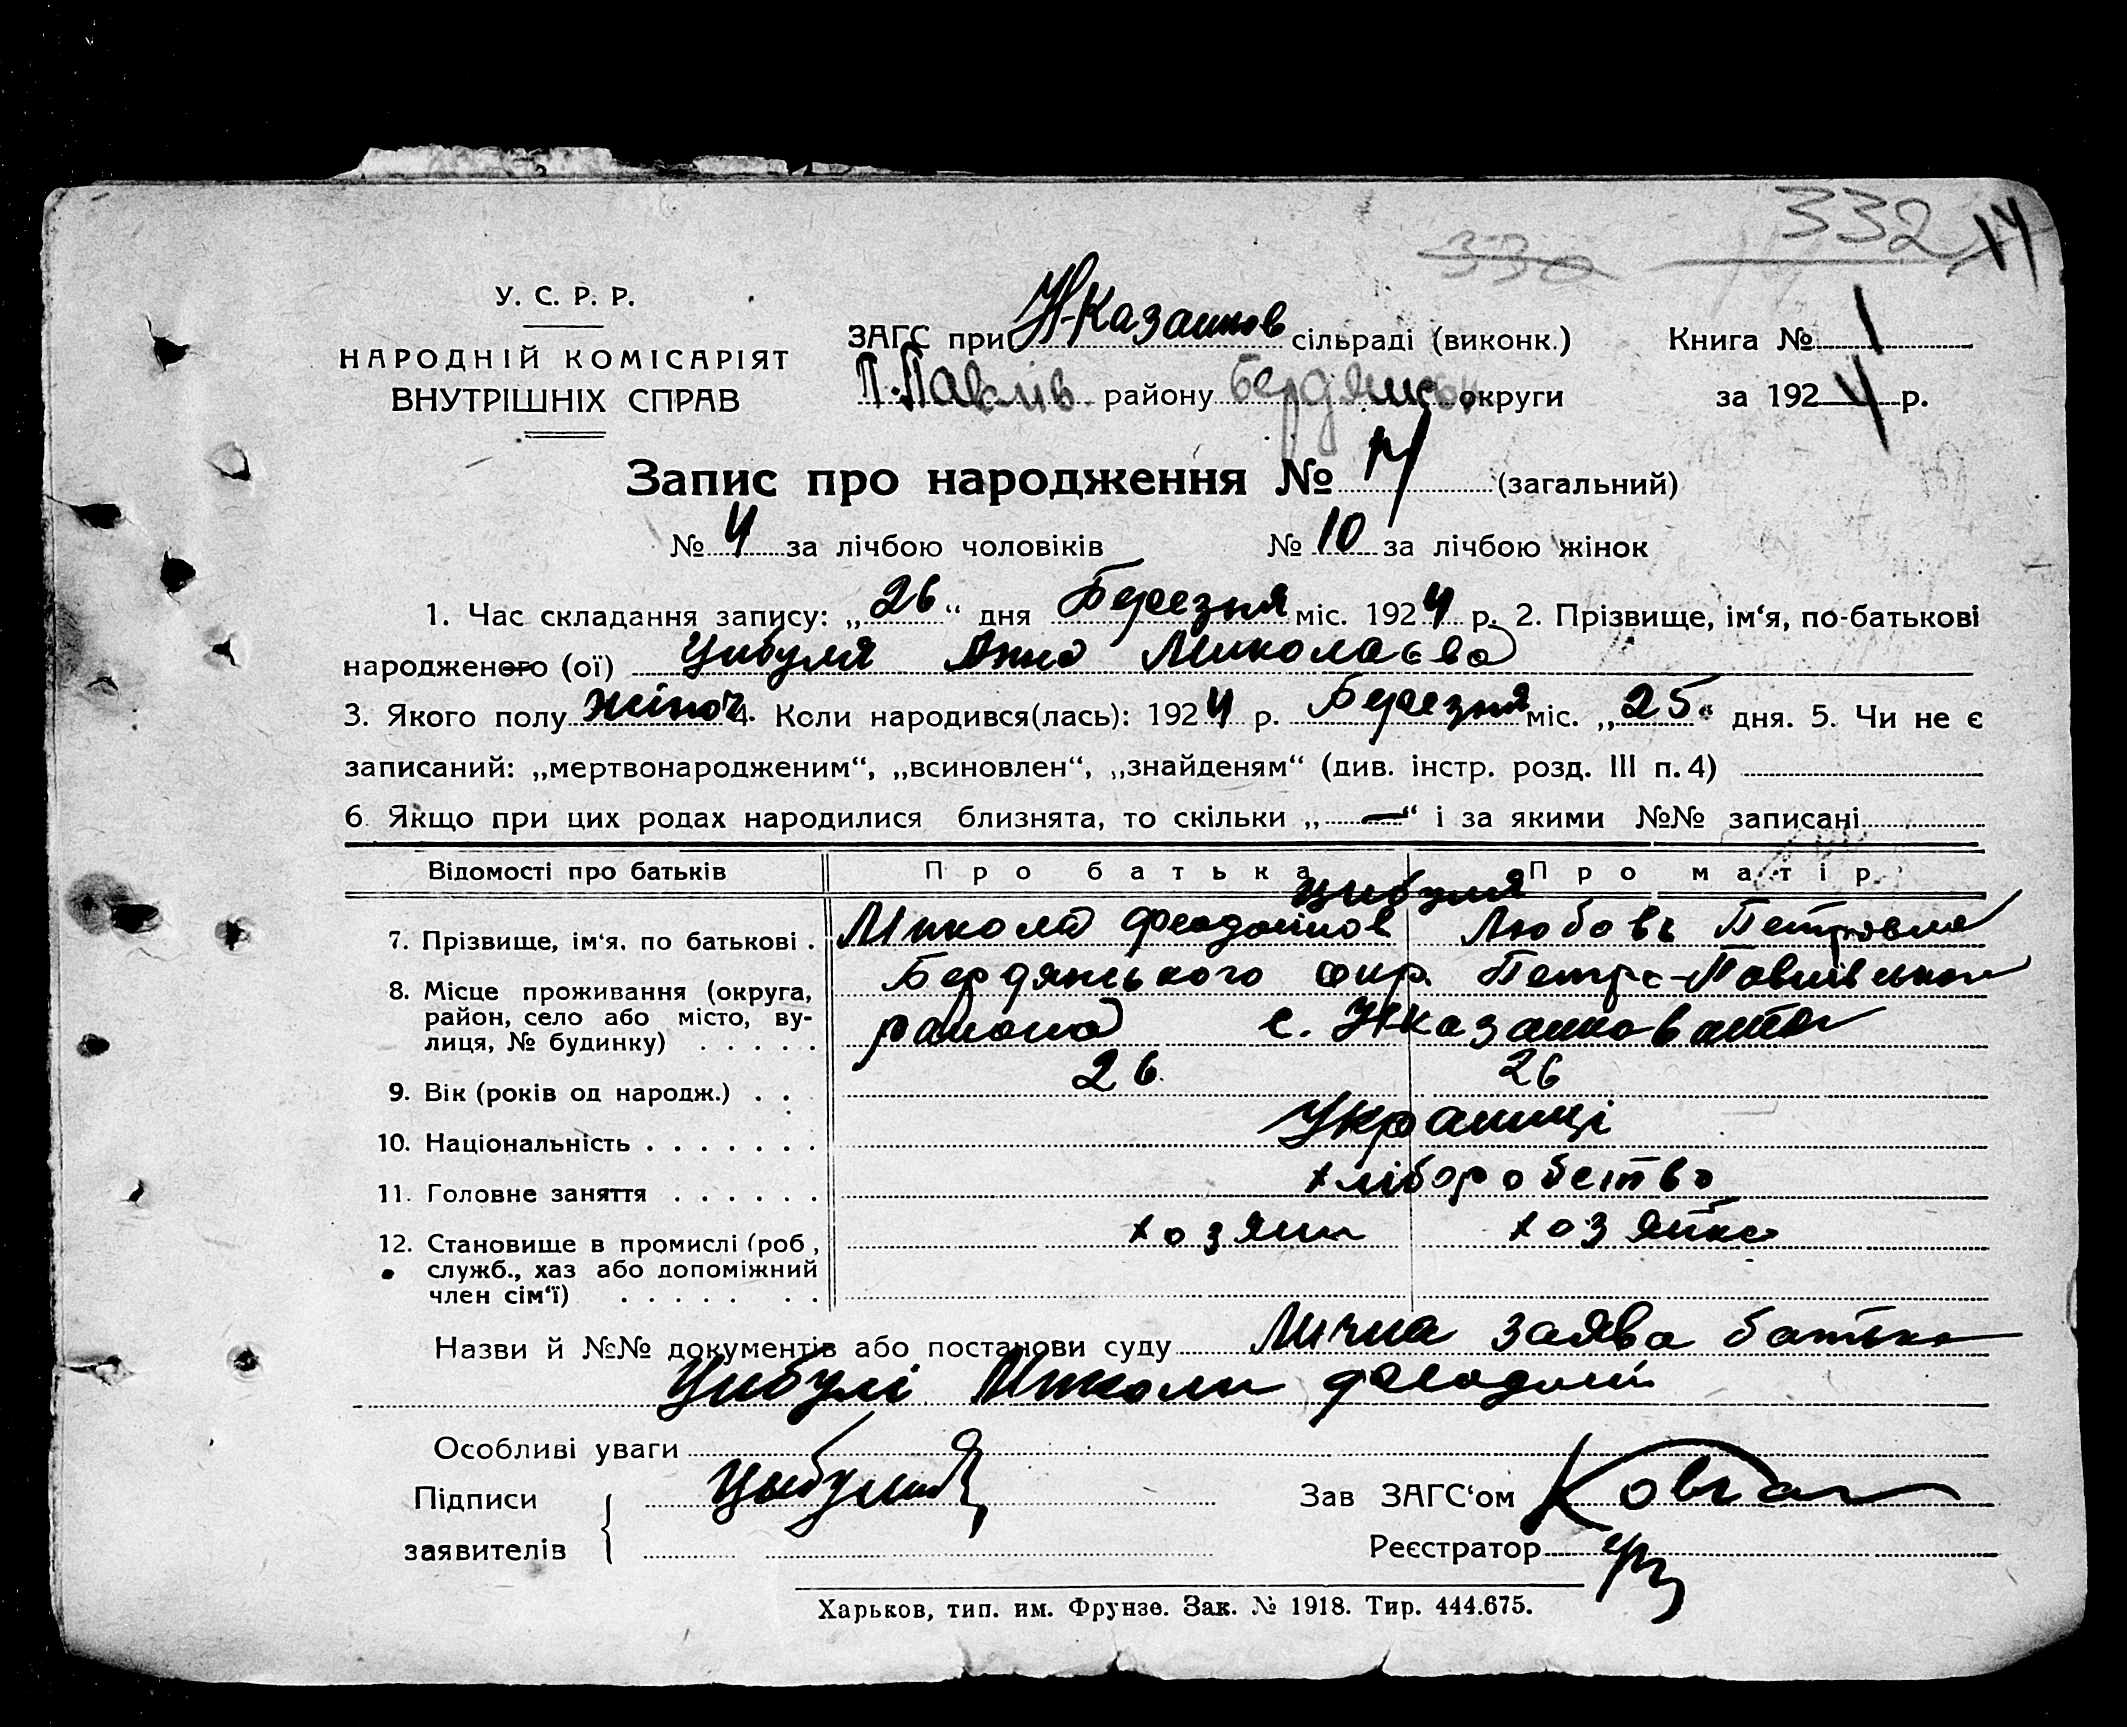 332 14
330
У. С. Р. Р.
НАРОДНІЙ КОМІСАРІЯТ
ВНУТРІШНІХ СПРАВ
ЗАГС при Н-Казанков сільраді (виконк.) Книга № 1
П.Павлів району Бердянськ округи за 1924 р.
Запис про народження № 14 (загальний)
№ 4 за лічбою чоловіків № 10 за лічбою жінок
1. Час складання запису: „26“ дня Березня міс. 1924 р. 2. Прізвище, ім‘я, по-батькові
народженого (ої) Цибуля Анна Миколаєва
3. Якого полу жіноч 4. Коли народився(лась): 1924 р. Березня міс. „25“ дня. 5. Чи не є
записаний: „мертвонародженим“, „всиновлен“, „знайденям“ (див. інстр. розд. III п. 4)
6. Якщо при цих родах народилися близнята, то скільки „—“ і за якими №№ записані
Відомості про батьків Про батька Про матір
Цибуля
7. Прізвище, ім‘я, по батькові . Микола Феодоші́ов Любовь Петровна
8. Місце проживання (округа, Бердянського окр. Петро-Павлівського
район, село або місто, ву- района с. Н-казанковатом
лиця, № будинку) . . . . .
9. Вік (років од народж.) . . 26 26
10. Національність . . . . . . . Українці
11. Головне заняття . . . . . . хліборобство
12. Становище в промислі (роб, хозяин хозяйка
служб., хаз або допоміжний
член сім‘ї) . . . . . . .
Назви й №№ документів або постанови суду Лична заява батька
Цибулі Миколи
Особливі уваги
Підписи Цыбуля Зав ЗАГС‘ом
заявителів Реєстратор
Харьков, тип. им. Фрунзе. Зак. № 1918. Тир. 444.675.